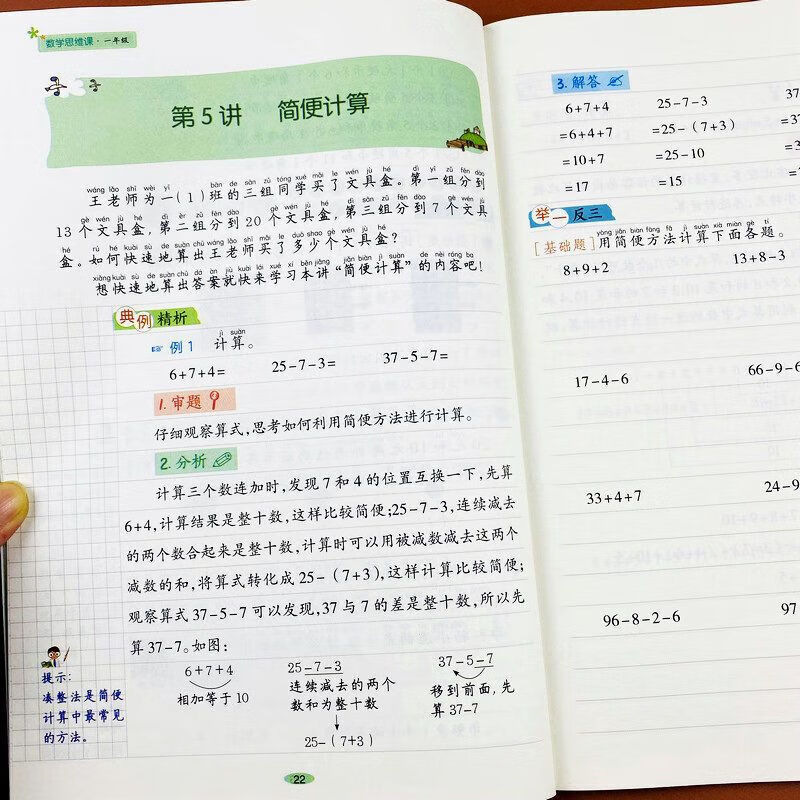 数学思维课·一年级
第5讲 简便计算
wáng lǎo shī wèi yī bān de sān zǔ tóng xué mǎi le wén jù hé dì yī zǔ fēn dào
王老师为一(1)班的三组同学买了文具盒。第一组分到
gè wén jù hé dì èr zǔ fēn dào gè wén jù hé dì sān zǔ fēn dào gè wén jù
13个文具盒,第二组分到20个文具盒,第三组分到7个文具
hé rú hé kuài sù de suàn chū wáng lǎo shī mǎi le duō shǎo gè wén jù hé
盒。如何快速地算出王老师买了多少个文具盒?
xiǎng kuài sù de suàn chū dá àn jiù kuài lái xué xí běn jiǎng jiǎn biàn jì suàn de nèi róng ba
想快速地算出答案就快来学习本讲“简便计算”的内容吧!
典例精析
jì suàn
例1 计算。
6+7+4= 25-7-3= 37-5-7=
1.审题
仔细观察算式,思考如何利用简便方法进行计算。
2.分析
计算三个数连加时,发现7和4的位置互换一下,先算
6+4,计算结果是整十数,这样比较简便;25-7-3,连续减去
的两个数合起来是整十数,计算时可以用被减数减去这两个
减数的和,将算式转化成25-(7+3),这样计算比较简便;
观察算式37-5-7可以发现,37与7的差是整十数,所以先
算37-7。如图:
6+7+4 25-7-3 37-5-7
相加等于10 连续减去的两个 移到前面,先
数和为整十数 算37-7
25-(7+3)
提示:
凑整法是简便
计算中最常见
的方法。
22
3.解答
6+7+4 25-7-3 37
=6+4+7 =25-(7+3) =3
=10+7 =25-10 =3
=17 =15 =
举一反三
yòng jiǎn biàn fāng fǎ jì suàn xià miàn gè tí
[基础题]用简便方法计算下面各题。
8+9+2 13+8-3
17-4-6 66-9-6
33+4+7 24-9
96-8-2-6 97